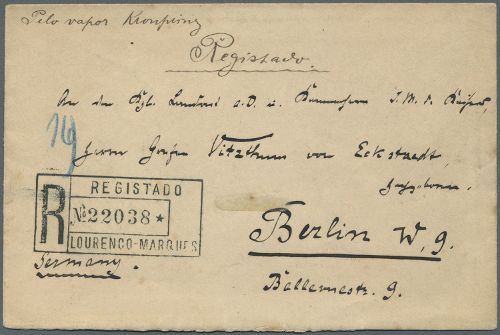 Pelo vapor Kronprinz
Registado.
An den Kgl. Landrat a. D. u. Kammerherrn S. M. d. Kaisers,
Herrn Grafen Vitzthum von Eckstaedt,
16
REGISTADO
R Nº 22038 *
LOURENÇO-MARQUES
Germany.
Berlin W, 9.
Bellevuestr. 9.